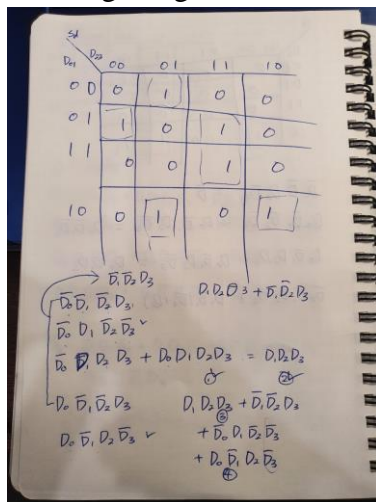 D₀₁ D₂₃ 00 01 11 10
00 0 1 0 0
01 1 0 1 0
11 0 0 1 0
10 0 1 0 1
D̅₁D̅₂D₃
D₁D₂D3 + D̅₁D̅₂D₃
D̅₀D̅₁D̅₂D₃
D̅₀ D₁ D̅₂D̅₃ ✓
D̅₀ D₁ D₂ D₃ + D₀D₁D₂D₃ = D₁D₂D₃
D₀ D̅₁D̅₂D₃
D₁D₂D₃ + D̅₁D̅₂D₃
③
D₀ D̅₁ D₂ D̅₃ ✓
+ D̅₀ D₁ D̅₂D̅₃
+ D₀ D̅₁ D₂ D̅₃
④